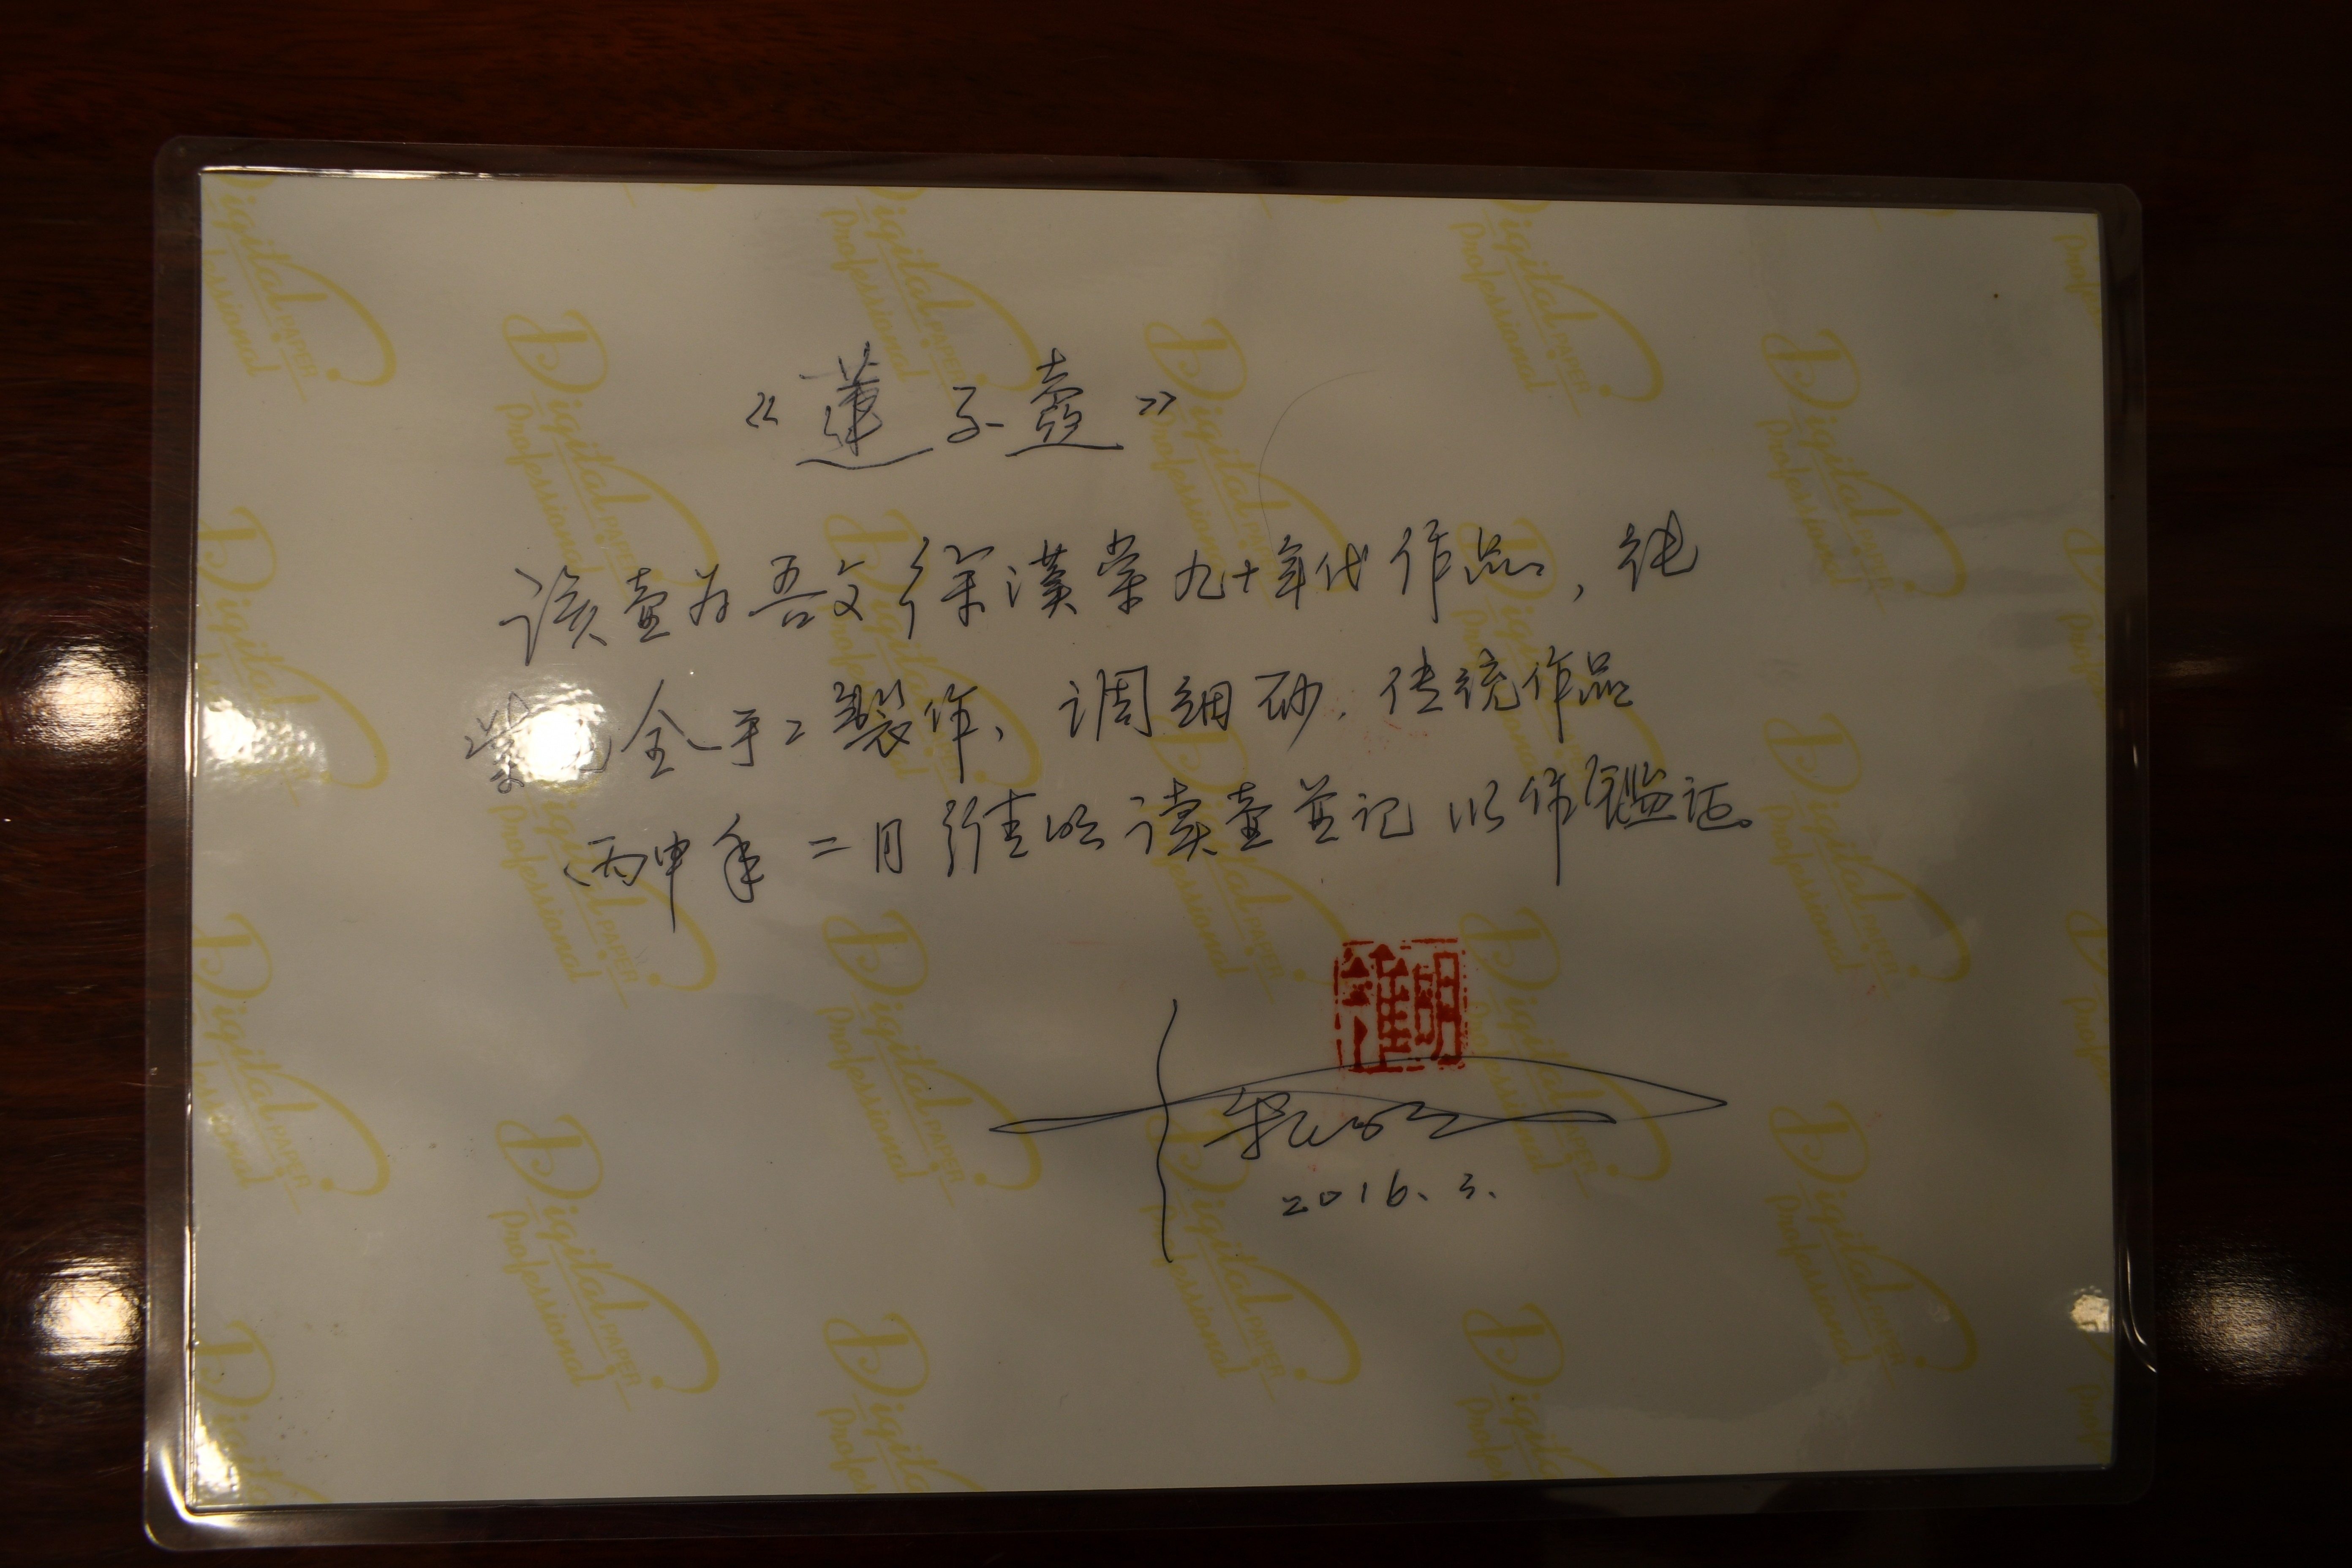 《蓮子壺》
该壺为吾父徐漢棠九十年代作品，純
紫全手工製作，调細砂，传统作品
丙申年二月維明读壺並记以作鑑证。
維明
2016.3.
Digital PAPER
Professional